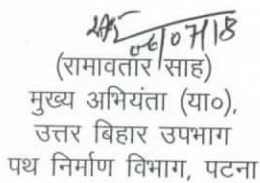 06/07/18
(रामावतार साह)
मुख्य अभियंता (या०),
उत्तर बिहार उपभाग
पथ निर्माण विभाग, पटना